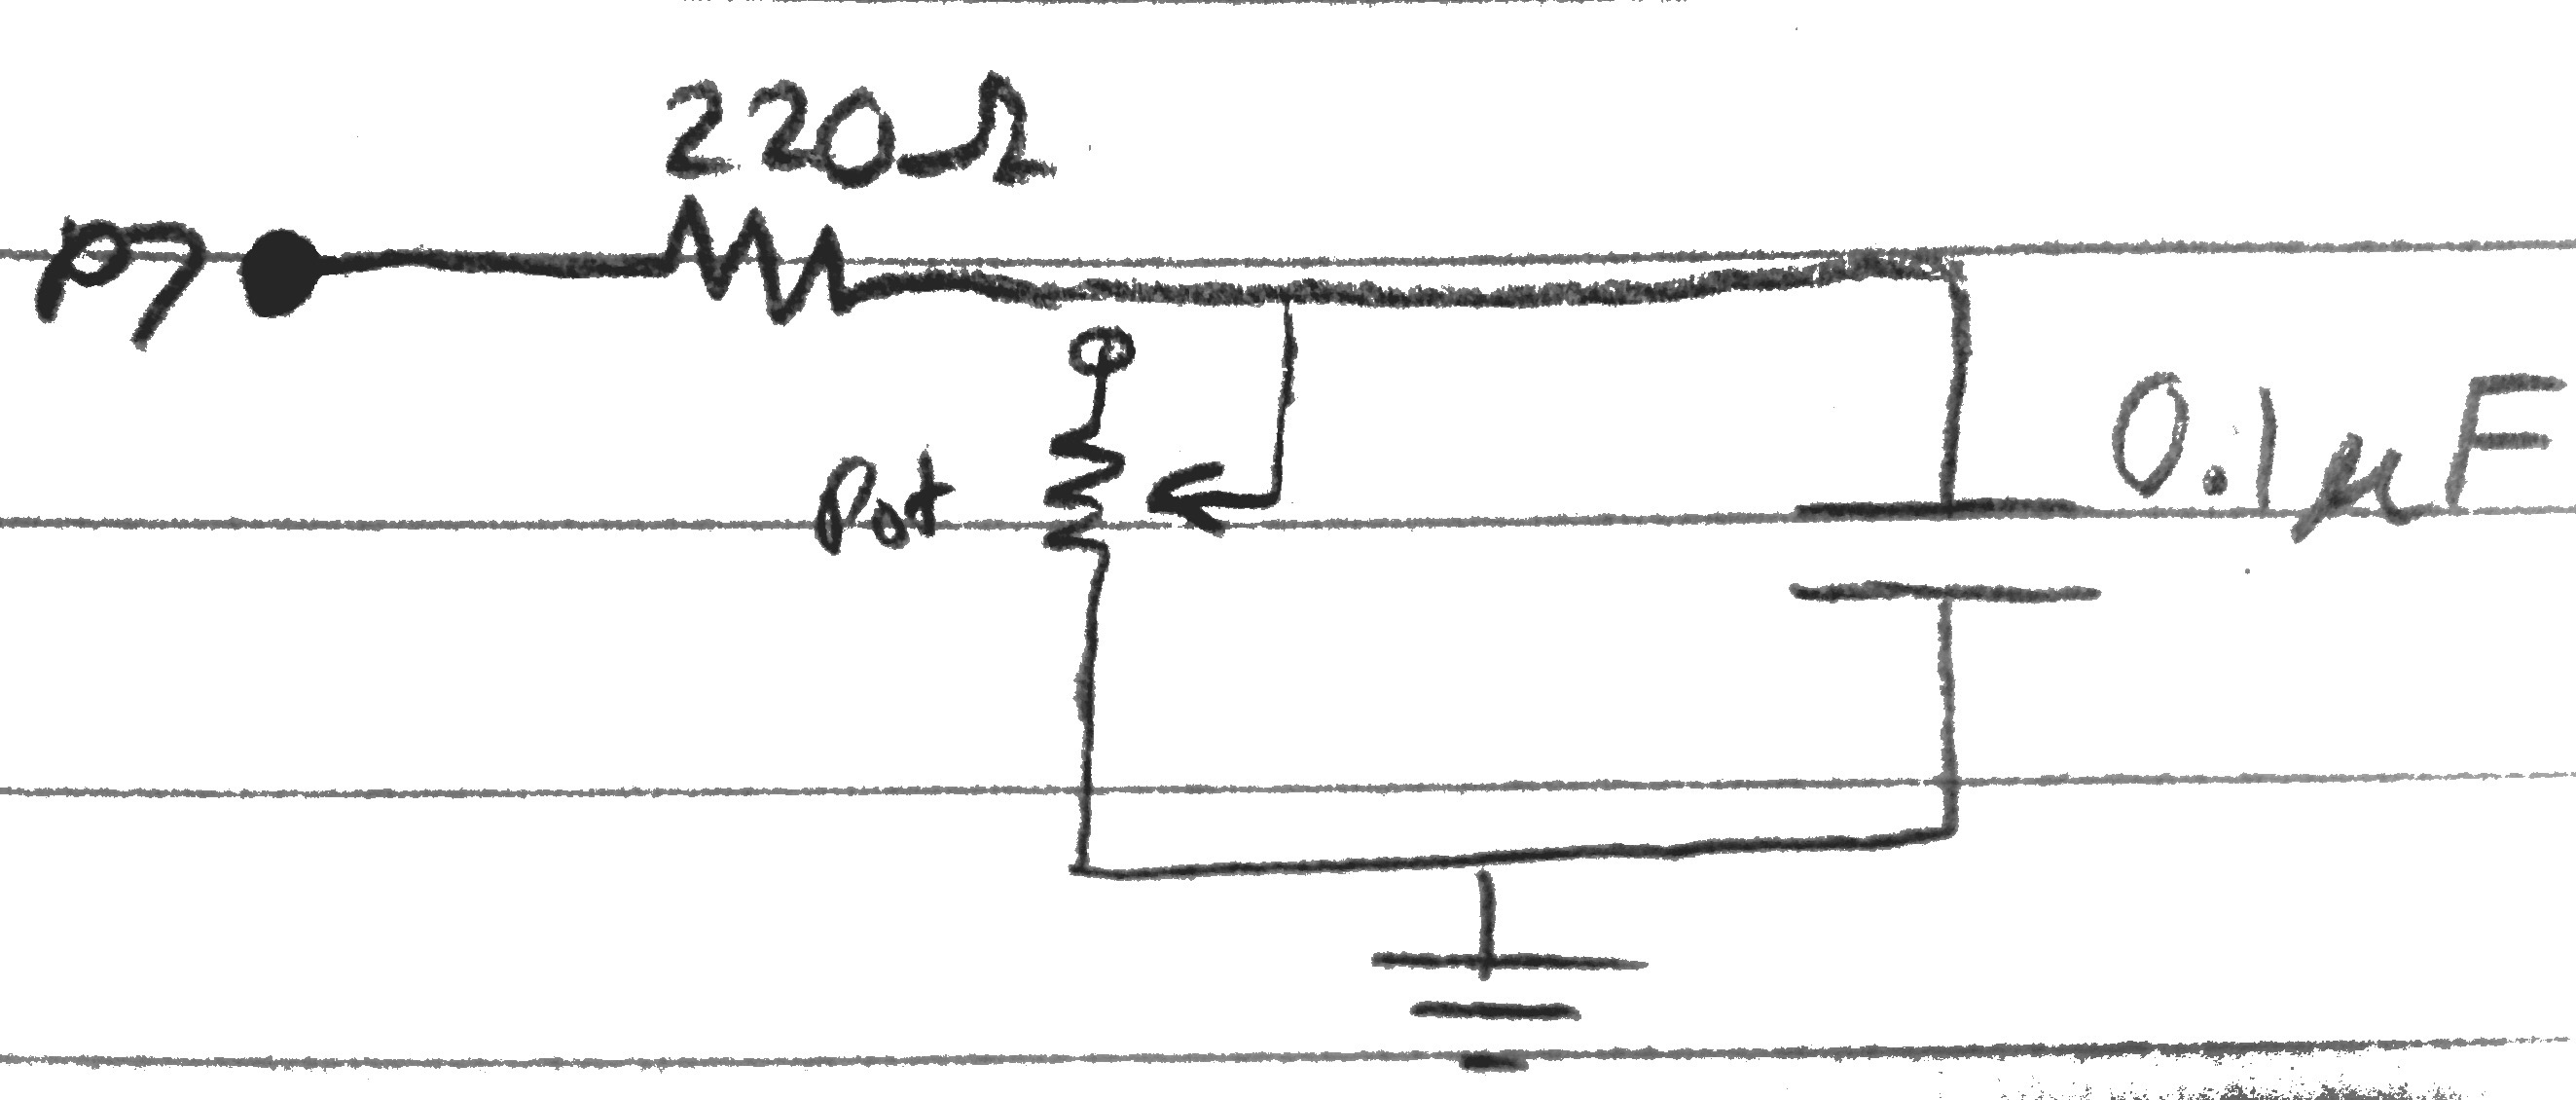 220Ω
P7
Pot
0.1μF